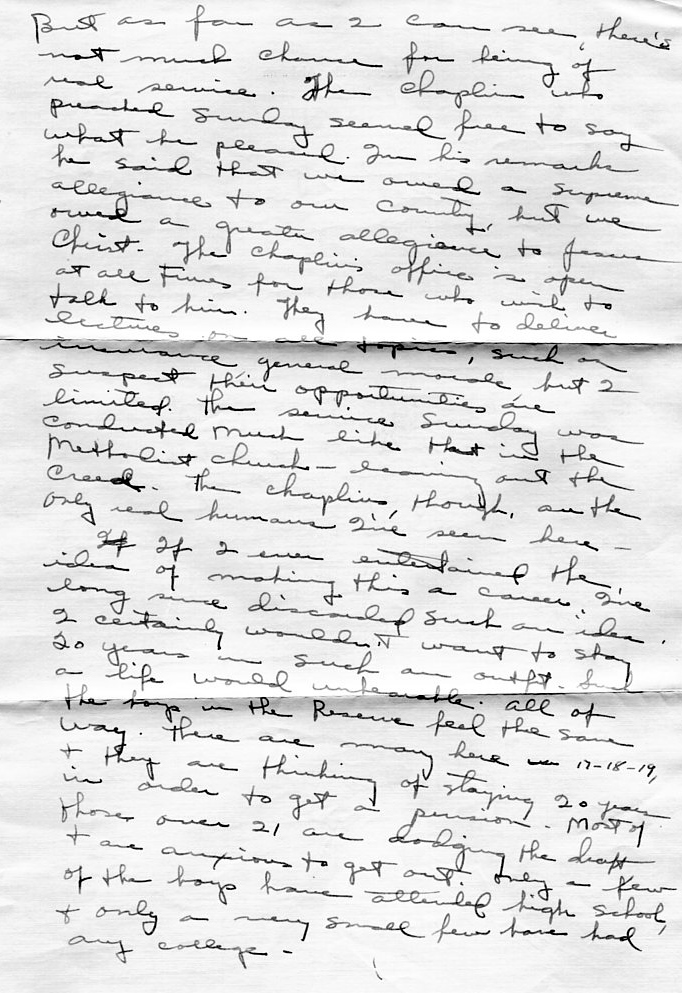 But as far as I can see, there's
not much chance for being of
real service. The chaplin who
preached Sunday seemed free to say
what he pleased. In his remarks
he said that we owed a supreme
allegiance to our county, but we
owed a greater allegience to Jesus
Christ. The chaplin's office is open
at all times for those who wish to
talk to him. They have to deliver
lectures on all topics, such as
insurance general morale but I
suspect their opportunities are
limited. The service Sunday was
conducted much like that in the
Methodist church - leaving out the
Creed. The chaplins, though, are the
only real humans I've seen here -
If If I ever entertained the
idea of making this a career, I've
long since discarded such an idea.
I certainly wouldn't want to stay
20 years in such an outfit. Such
a life would unbearable. All of
the boys in the Reserve feel the same
way. There are many here 17-18-19,
+ they are thinking of staying 20 years
in order to get a pension. Most of
those over 21 are dodging the draft
+ are anxious to get out. Only a few
of the boys have attended high school,
+ only a very small few have had
any college -